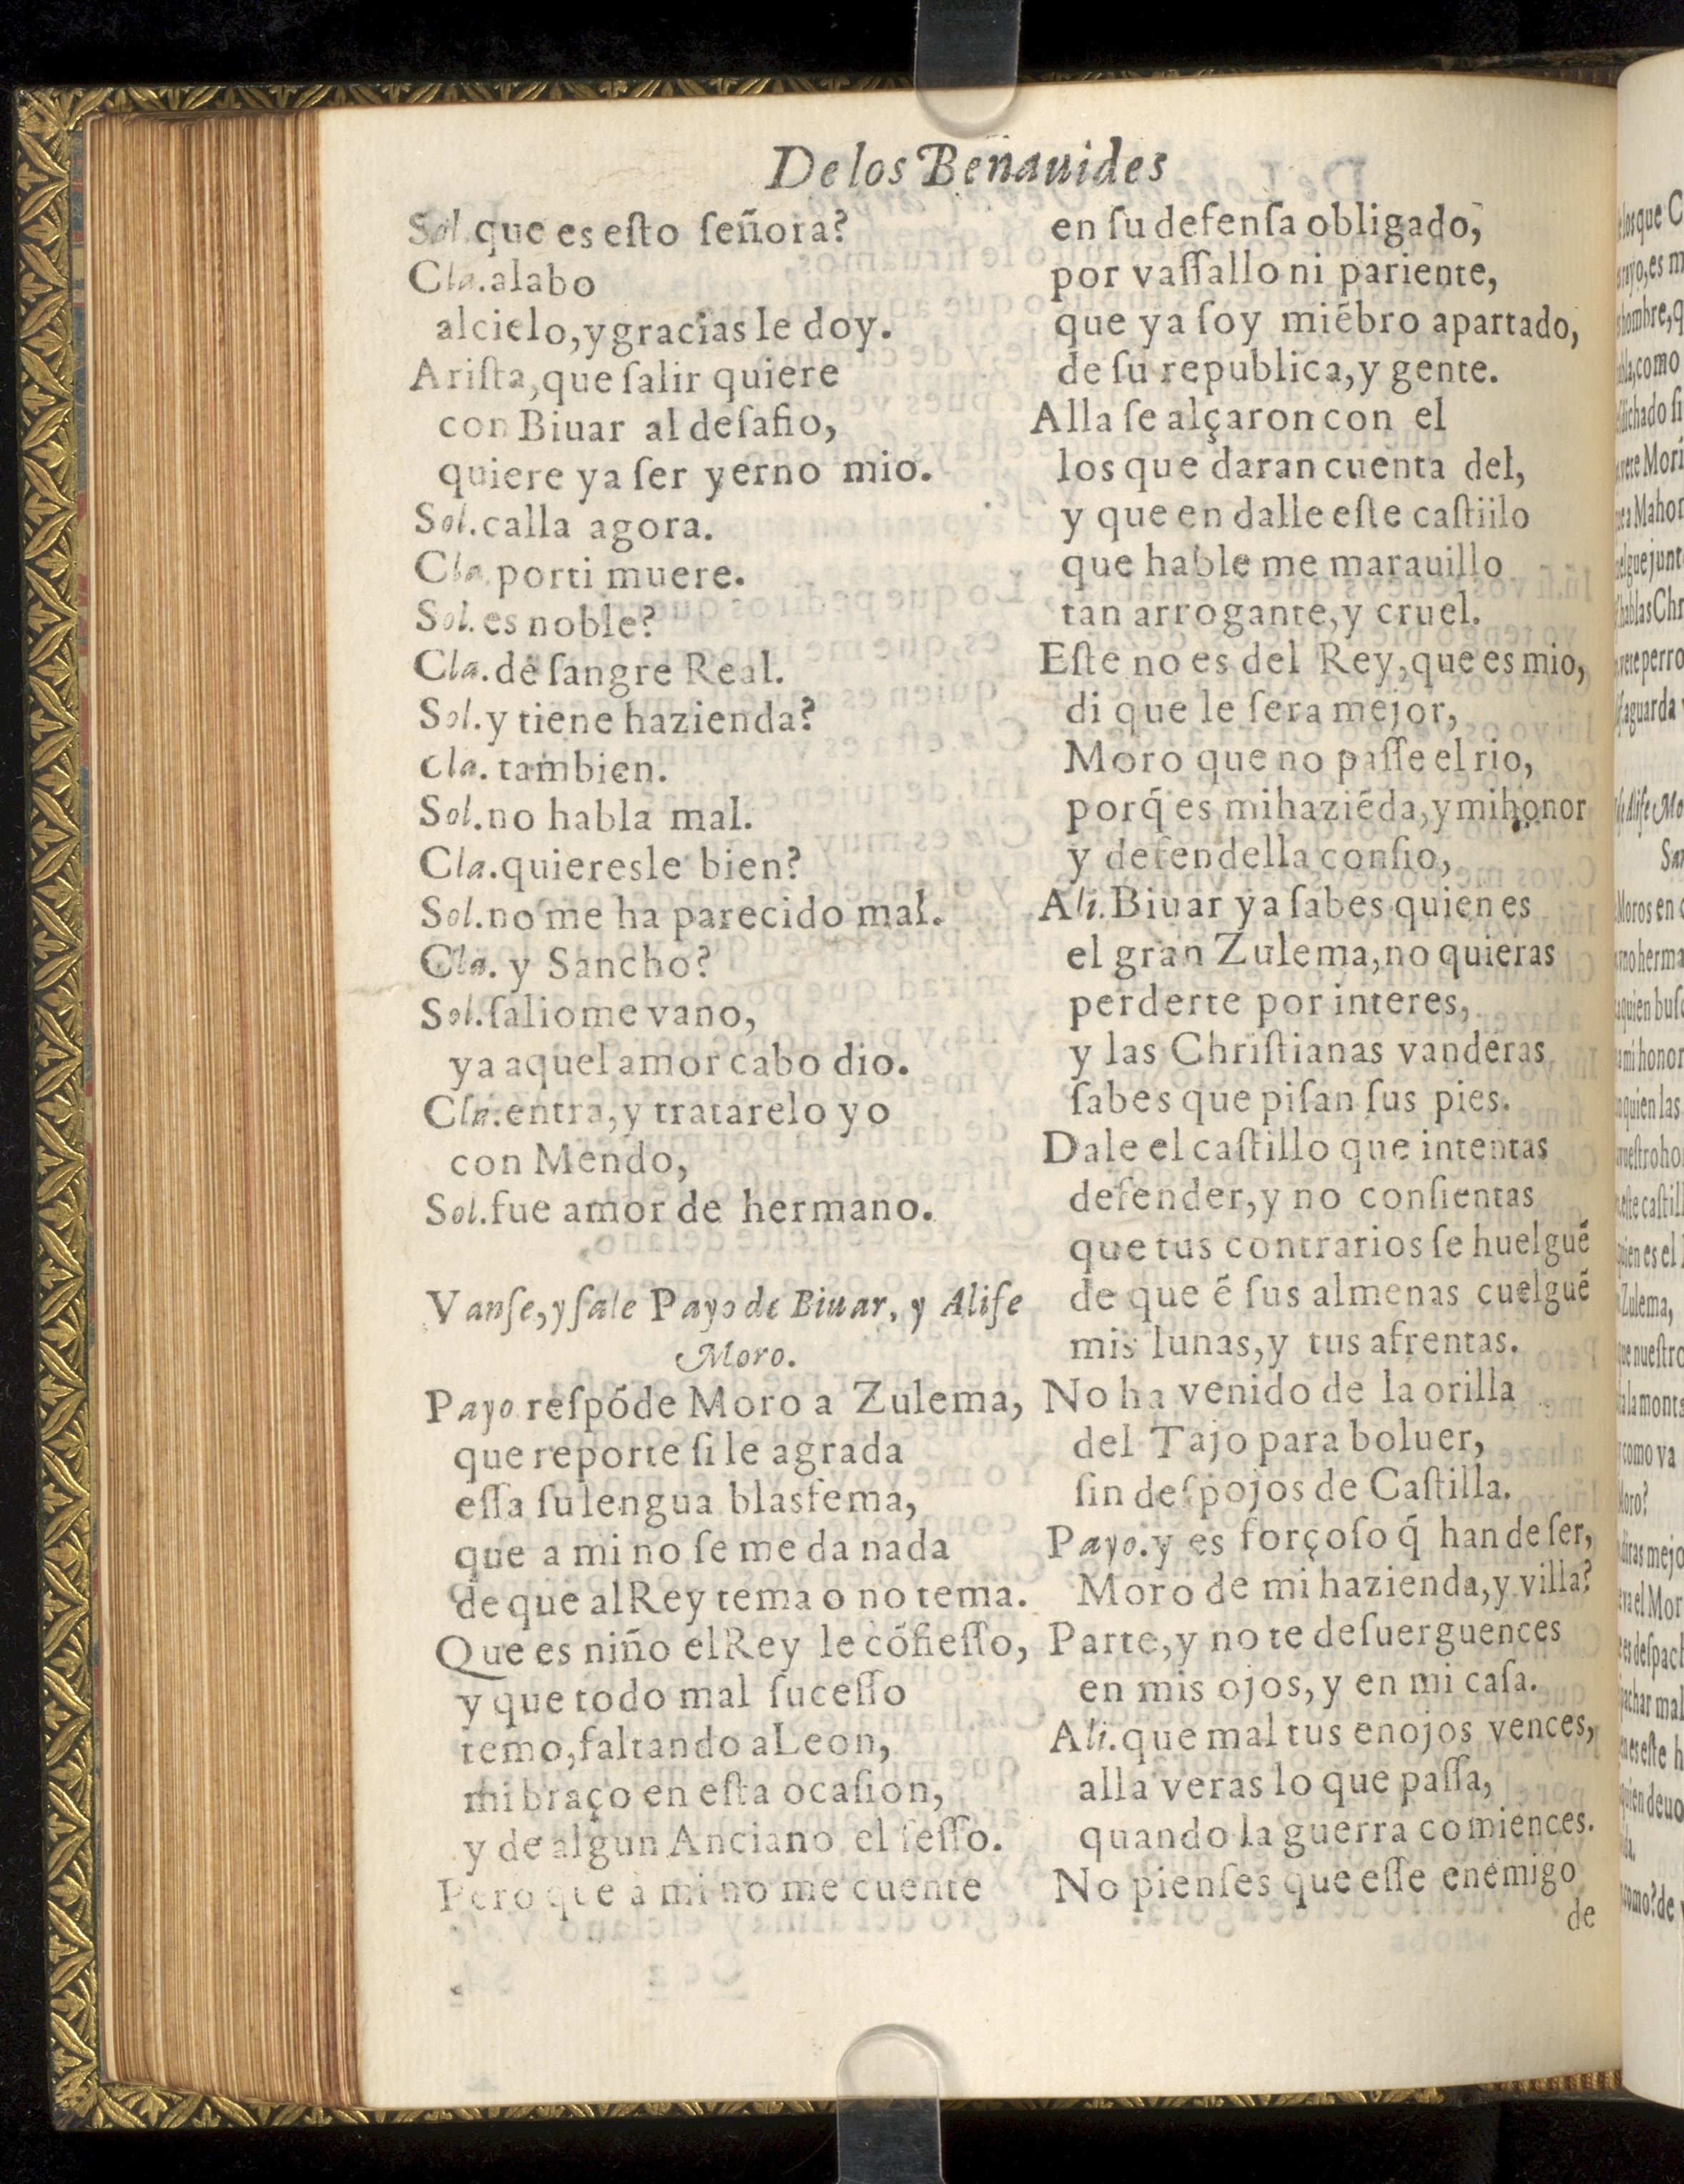 De los Benauides
Sol. que es eſto ſeñora?
Cla. alabo
al cielo, y gracias le doy.
Ariſta, que ſalir quiere
con Biuar al deſafio,
quiere ya ſer yerno mio.
Sol. calla agora.
Cla. por ti muere.
Sol. es noble?
Cla. de ſangre Real.
Sol. y tiene hazienda?
Cla. tambien.
Sol. no habla mal.
Cla. quieresle bien?
Sol. no me ha parecido mal.
Cla. y Sancho?
Sol. ſaliome vano,
ya aquel amor cabo dio.
Cla. entra, y tratarelo yo
con Mendo,
Sol. fue amor de hermano.
Vanſe, y ſale Payo de Biuar, y Aliſe
Moro.
Payo reſpõde Moro a Zulema,
que reporte ſi le agrada
eſſa ſu lengua blasfema,
que a mi no ſe me da nada
de que al Rey tema o no tema.
Que es niño el Rey le cõfieſſo,
y que todo mal ſuceſſo
temo, faltando a Leon,
mi braço en eſta ocaſion,
y de algun Anciano el ſeſſo.
Pero que a mi no me cuente
en ſu defenſa obligado,
por vaſſallo ni pariente,
que ya ſoy miẽbro apartado,
de ſu republica, y gente.
Alla ſe alçaron con el
los que daran cuenta del,
y que en dalle eſte caſtiilo
que hable me marauillo
tan arrogante, y cruel.
Eſte no es del Rey, que es mio,
di que le ſera mejor,
Moro que no paſſe el rio,
porq̃ es mi haziẽda, y mi honor
y defendella confio,
Ali. Biuar ya ſabes quien es
el gran Zulema, no quieras
perderte por interes,
y las Chriſtianas vanderas
ſabes que piſan ſus pies.
Dale el caſtillo que intentas
defender, y no conſientas
que tus contrarios ſe huelguẽ
de que ẽ ſus almenas cuelguẽ
mis lunas, y tus afrentas.
No ha venido de la orilla
del Tajo para boluer,
ſin deſpojos de Caſtilla.
Payo. y es forçoſo q̃ han de ſer,
Moro de mi hazienda, y villa?
Parte, y no te deſuerguences
en mis ojos, y en mi caſa.
Ali. que mal tus enojos vences,
alla veras lo que paſſa,
quando la guerra comiences.
No pienſes que eſſe enemigo
de